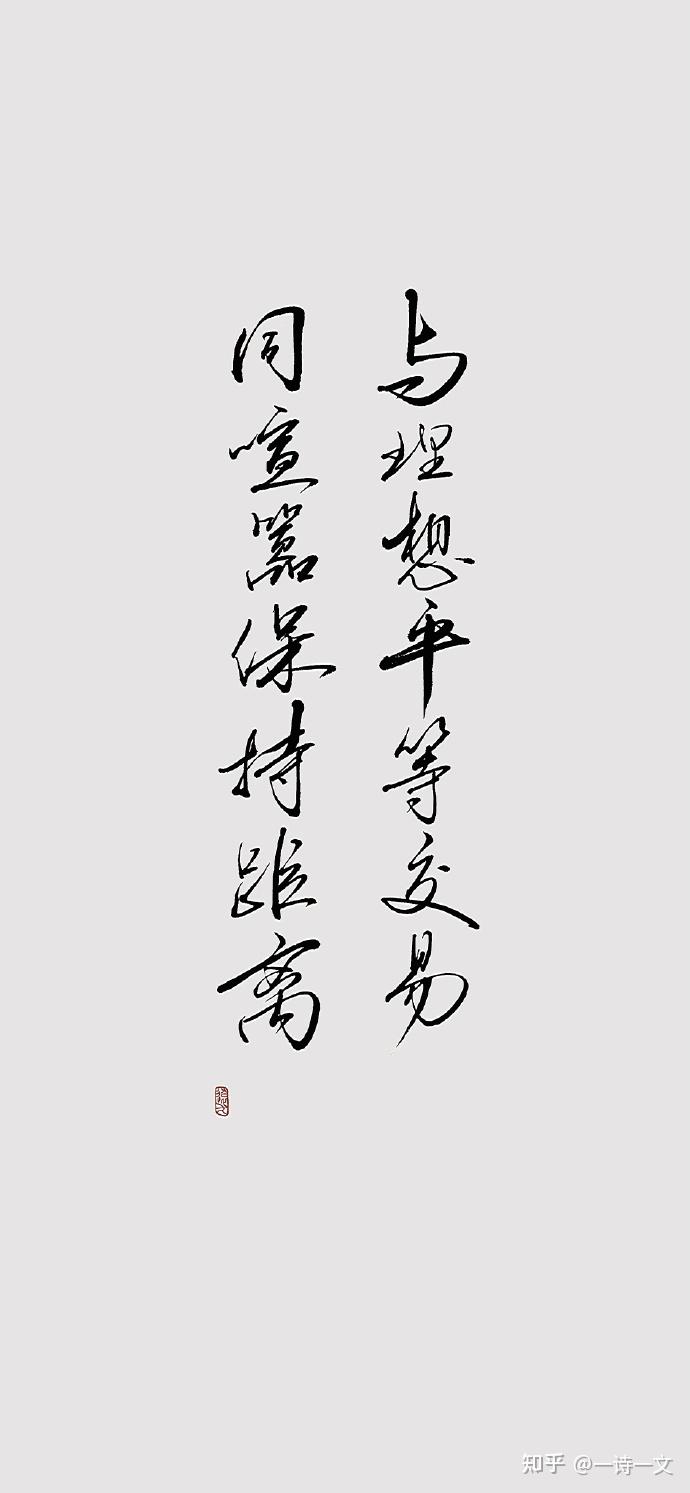 与理想平等交易
同喧嚣保持距离
知乎 @一诗一文